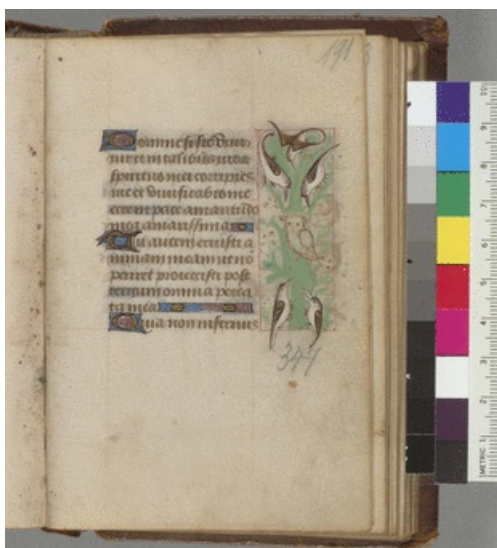 191
Domine si sic viui
tur et in talibus uita
spiritus mei corripies
me et viuificabis me
ecce in pace amaritudo
mea amarissima
Tu autem eruisti a
nimam meam ut nō
periret proiecisti post
tergum omnia pecca
ta mea
Quia non infernus
347
METRIC 1 2 3 4 5 6 7 8 9 10